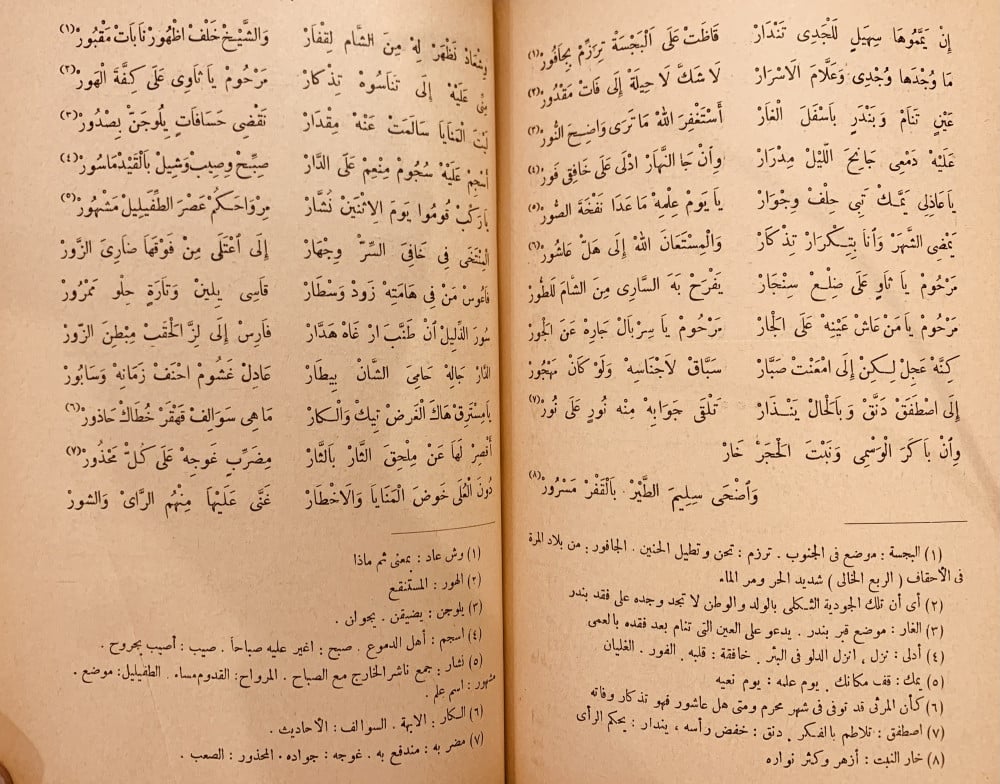 إِنْ يَمَّمُوهَا سِهِيلٍ لِلْجَدِى تَنْدَارْ قَاظَتْ عَلَى الْبَجْسَةْ تِرَزِّمْ بِجَافُورْ (١)
مَا وُجْدَهَا وُجْدِى وَعَلَّامَ الْاسْرَارْ لَا شَكَّ لَا حِيلَةْ إِلَى فَاتْ مَقْدُورْ (٢)
عَيْنٍ تَنَامْ وَبَنْدَرٍ بَاسْفَلَ الْغَارْ أَسْتَغْفِرَ اللهْ مَا تَرَى وَاضِحَ النُّورْ (٣)
عَلَيْهْ دَمْعِى جَانِحَ اللَّيْلْ مِدْرَارْ وَإنْ جَا النَّهَارْ ادْلَى عَلَى خَافِقِى فَورْ (٤)
يَا عَاذِلِى يَمَّكْ تَبِى حِلْفْ وِجْوَارْ يَا يَوْمْ عِلْمِهْ مَا عَدَا نَفْخَةَ الصُّورْ (٥)
يَمْضِى الشَّهَرْ وَأنَا بِتِكْرَارْ تِذْكَارْ وَالْمِسْتَعَانَ اللهْ إِلَى هَلّْ عَاشُورْ (٦)
مَرْحُومْ يَا ثَاوٍ عَلَى ضِلْعْ سِنْجَارْ يَفْرَحْ بَهَ السَّارِى مِنَ الشَّامْ لَلطُّورْ
مَرْحُومْ يَا مَنْ عَاشْ عَيْنِهْ عَلَى الْجَارْ مَرْحُومْ يَا سِرْبَالْ جَارِهْ عَنَ الْجُورْ
كِنَّهْ عَجِلْ لٰكِنْ إِلَى امْعَنْتْ صَبَّارْ سَبَّاقْ لَاجْنَاسِهْ وَلَوْ كَانْ مَهْجُورْ
إِلَى اصْطَفَقْ دَنَّقْ وَبَالْحَالْ يَنْدَارْ تَلْقَى جَوَابِهْ مِنْهْ نُورٍ عَلَى نُورْ (٧)
وِانْ بَاكَرَ الْوَسْمِى وَنَبْتَ الْحَجَرْ خَارْ
وَأَضْحَى سِلِيمَ الطَّيْرْ بَالْقَفْرْ مَسْرُورْ (٨)
(١) البجسة : موضع فى الجنوب . ترزم : تحن وتطيل الحنين . الجافور : من بلاد المرة
فى الأحقاف ( الربع الخالى ) شديد الحر ومر الماء
(٢) أى أن تلك الجودية الشكلى بالولد والوطن لا تجد وجده على فقد بندر
(٣) الغار : موضع قبر بندر . يدعو على العين التى تنام بعد فقده بالعمى
(٤) أدلى : نزل ، انزل الدلو فى البئر . خافقة : قلبه . الفور . الغليان
(٥) يمك : قف مكانك . يوم علمه : يوم نعيه
(٦) كأن المرثى قد توفى فى شهر محرم ومتى هل عاشور فهو تذكار وفاته
(٧) اصطفق : تلاطم بالفكر . دنق : خفض رأسه ، يندار : يحكم الرأى
(٨) خار النبت : أزهر وكثر نواره
وِشْعَادْ نَظْهَرْ لِهْ مِنَ الشَّامْ لِقْفَارْ وَالشَّيْخْ خَلْفْ اظْهُورْ نَابَاتْ مَقْبُورْ (١)
عَلَيْهْ إِلَى تَنَاسُوهْ تِذْكَارْ مَرْحُومْ يَا ثَاوِى عَلَى كِفَّةَ الْهَورْ (٢)
لَيْتَ الْمَنَايَا سَالَمَتْ عَنْهْ مِقْدَارْ تَقْضَى حَسَافَاتٍ يُلُوجَنْ بِصْدُورْ (٣)
اسْجِمْ عَلَيْهْ سُجُومْ مِنْعِمْ عَلَى الدَّارْ صِبِّحْ وصِيبْ وِشِيلْ بَالْقَيْدْ مَاسُورْ (٤)
يَا رَكْبْ قُومُوا يَومَ الِاثْنَيْنْ نُشَّارْ مِرْوَاحَكُمْ عَصْرَ الطِّفَيلِيلْ مَشْهُورْ (٥)
الْمِنْتَخَى فِى خَافِىَ السِّرّْ وِجْهَارْ إِلَى أَعْتَلَى مِنْ فَوْقَهَا ضَارِىَ الزَّوْرْ
فَاعُوسْ مَنْ فِى هَامِتِهْ زَودْ وَسْطَارْ قَاسِى يِلِينْ وَتَارَةٍ حِلْو نَمْرُورْ
سُورَ الذَّلِيلْ أَنْ طَنَّبَ ارْ غَاهْ هَدَّارْ فَارِسْ إِلَى لِزَّ الْحَقَبْ مِبْطِنَ الزَّورْ
الدَّارْ جَالِهْ حَامِىَ الشَّانْ بِيطَارْ عَادِلْ غَشُومْ احْنَفْ زَمَانِهْ وَسَابُورْ
يَا مِسْتِرِقْ هَاكَ الْغَرَضْ تِيكْ وَالْكَارْ مَا هِى سَوَالِفْ قَهْقَرْ خُطَاكْ حَاذُورْ (٦)
أَقْصِرْ لَهَا عَنْ مِلْحِقَ الثَّارْ بَالثَّارْ مِضَرِّبٍ غَوجِهْ عَلَى كُلّْ مَحْذُورْ (٧)
دُونَ الْعُلَى خَوضَ الْمَنَايَا وَالَاخْطَارْ غَنَّى عَلَيْهَا مِنْهُمَ الرَّاىْ وَالشورْ
(١) وش عاد : بمعنى ثم ماذا
(٢) الهور : المستنقع
(٣) يلوجن : يضيقن . يحوانى .
(٤) اسجم : أهل الدموع . صبح : اغير عليه صباحاً . صيب : أصيب بجروح .
(٥) نشار : جمع ناشر الخارج مع الصباح . المرواح : القدوم مساء . الطفيليل : موضع .
مشهور : اسم علم .
(٦) الكار : الابهة . السوالف : الأحاديث .
(٧) مضر به : مندفع به . غوجه : جواده . المحذور : الصعب .